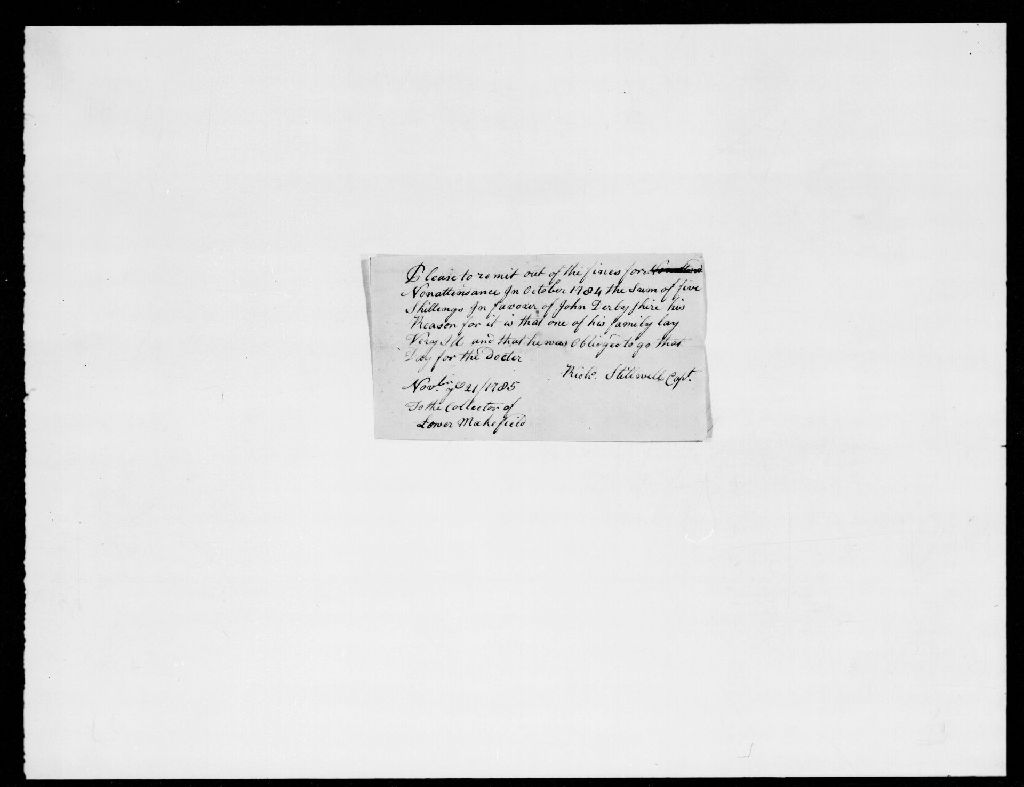 Please to remit out of the fines for
Nonattinsance In October 1784 the Sum of five
Shillings In favour of John Derbyshire his
Reason for it is that one of his family lay
Very Ill, and that he was Obliged to go that
Day for the Docter
Richd. Stillwell Capt.
Novbr. ye 21/1785
To the Collector of
Lower Makefield